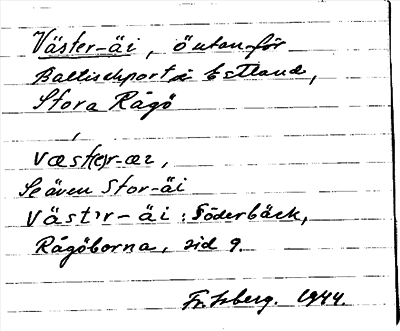 Väster-äi, ö utanför
Baltischport i Estland,
Stora Rågö
Væst(e)r-æi,
Se även Stor-äi
Västr-äi: Söderbäck,
Rågöborna, sid 9.
Fr. Isberg. 1944.